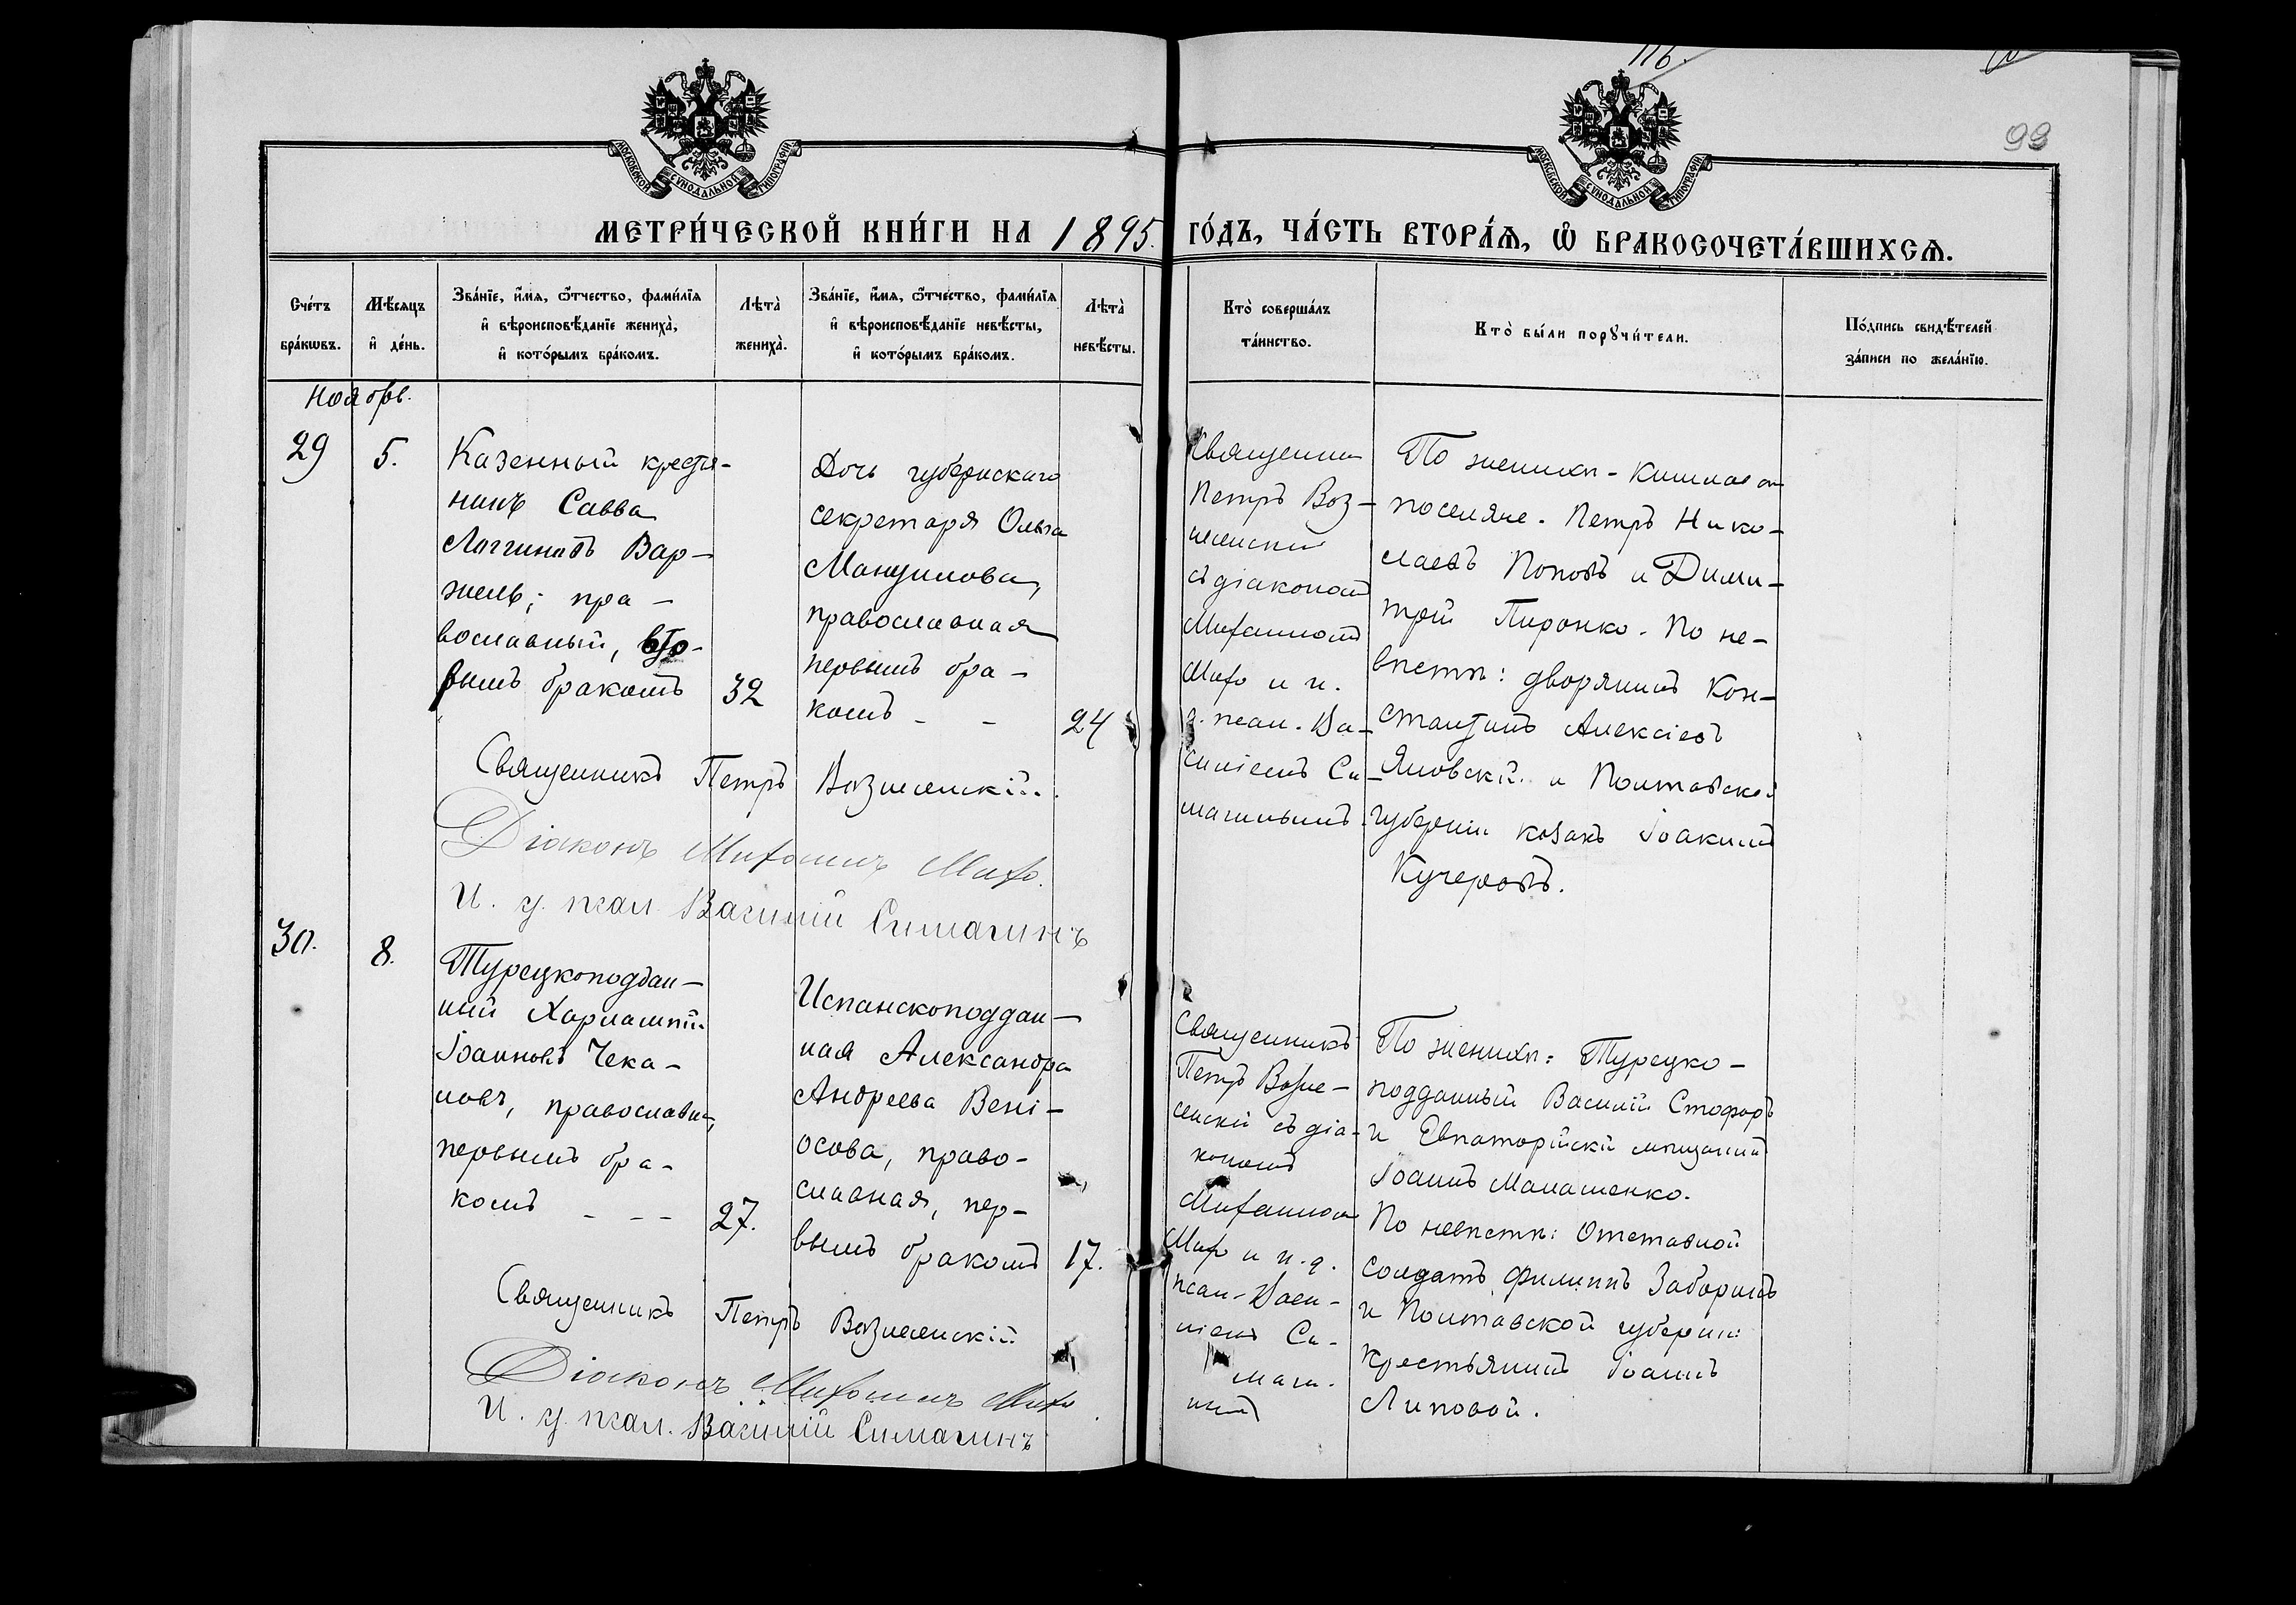 116.
99
МОСКОВСКОЙ СѴНОДАЛЬНОЙ ТИПОГРАФІИ
МОСКОВСКОЙ СѴНОДАЛЬНОЙ ТИПОГРАФІИ
МЕТРИ́ЧЕСКОЙ КНИ́ГИ НА 1895. ГО́ДЪ, ЧА́СТЬ ВТОРА́Ѧ, Ѽ БРАКОСОЧЕТА́ВШИХСѦ.
Сче́тъ
бра́кωвъ.
Мѣ́сяцъ
и҆ де́нь.
Зва́нїе, и҆́мя, ѻ҆́тчество, фами́лїя
и҆ вѣроисповѣ́данїе жениха̀,
и҆ кото́рымъ бра́комъ.
Лѣта̀
жениха̀.
Зва́нїе, и҆́мя, ѻ҆́тчество, фами́лїя
и҆ вѣроисповѣ́данїе невѣ́сты,
и҆ кото́рымъ бра́комъ.
Лѣта̀
невѣ́сты.
Кто̀ соверша́лъ
та́инство.
Кто̀ бы́ли порꙋчи́тели.
По́дпись свидѣ́телей
за́писи по жела́нїю.
Ноябрь.
29
5.
Казенный крестья-
нинъ Савва
Логгиновъ Вар-
жель; пра-
вославный, вто-
рымъ бракомъ
32
Дочь губернскаго
секретаря Ольга
Манушлова,
православная
первымъ бра-
комъ - -
24
Священни
Петръ Воз-
несенскій
съ діакономъ
Митрофаномъ
и и.
д. псал. Ва-
силіемъ Си-
магинымъ.
По женихѣ -
поселяне. Петръ Нико-
лаевъ Поповъ и Дими-
трій Пиронко. По не-
вѣстѣ: дворянинъ Кон-
стантинъ Алексіевъ
Яновскій и Полтавской
губерніи козакъ Іоакимъ
Кучеровъ.
Священникъ Петръ Вознесенскій.
Діаконъ
И. д. псал. Василій Симагинъ
30.
8.
Турецкоподдан-
ный Харлампій
Іоанновъ Чека-
новъ, православн.,
первымъ бра-
комъ - - -
27.
Испанскоподдан-
ная Александра
Андреева Вені-
осова, право-
славная, пер-
вымъ бракомъ
17.
Священникъ
Петръ Возне-
сенскій съ діа-
кономъ
и и. д.
псал. Васи-
ліемъ Си-
маги-
нымъ
По женихѣ: Турецко-
подданный Василій Стофоръ
и Евпаторійскій мѣщанинъ
Іоаннъ Малашенко.
По невѣстѣ: Отставной
солдатъ Филиппъ Заборинъ
и Полтавской губерніи
крестьянинъ Іоаннъ
Липовой.
Священникъ Петръ Вознесенскій
Діаконъ
И. д. псал. Василій Симагинъ